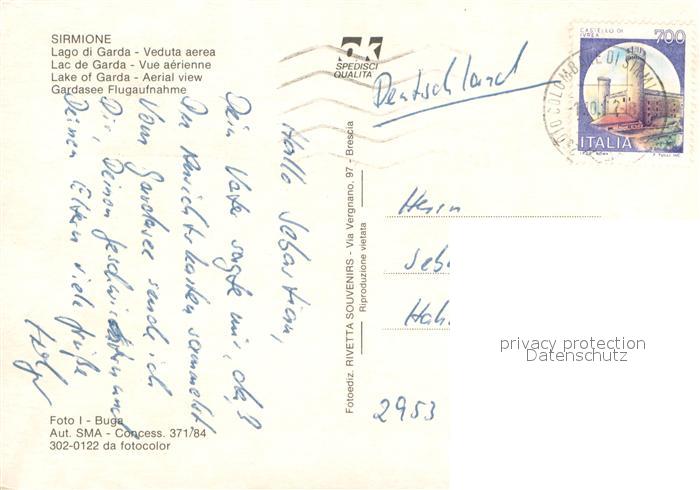 SIRMIONE
Lago di Garda - Veduta aerea
Lac de Garda - Vue aérienne
Lake of Garda - Aerial view
Gardasee Flugaufnahme
ok
SPEDISCI
QUALITA
CASTELLO DI
IVREA
700
ITALIA
COLOMBARE DI SIRM
Deutschland
Hallo Sebastian,
Dein Vater sagte mir, daß
Du Ansichtskarten sammelst.
Vom Gardasee sende ich
Dir, Deinen Geschwistern und
Deinen Eltern viele Grüße
Fotoediz. RIVETTA SOUVENIRS - Via Vergnano, 97 - Brescia
Riproduzione vietata
Herrn
Seb
Hah
2953
privacy protection
Datenschutz
Foto I - Buga
Aut. SMA - Concess. 371/84
302-0122 da fotocolor